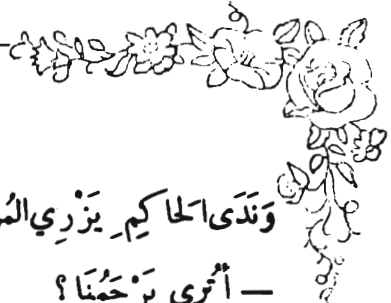 وَنَدَى الحَاكِمِ يَزْرِي
— أَتُرَى يَرْحَمُنَا؟